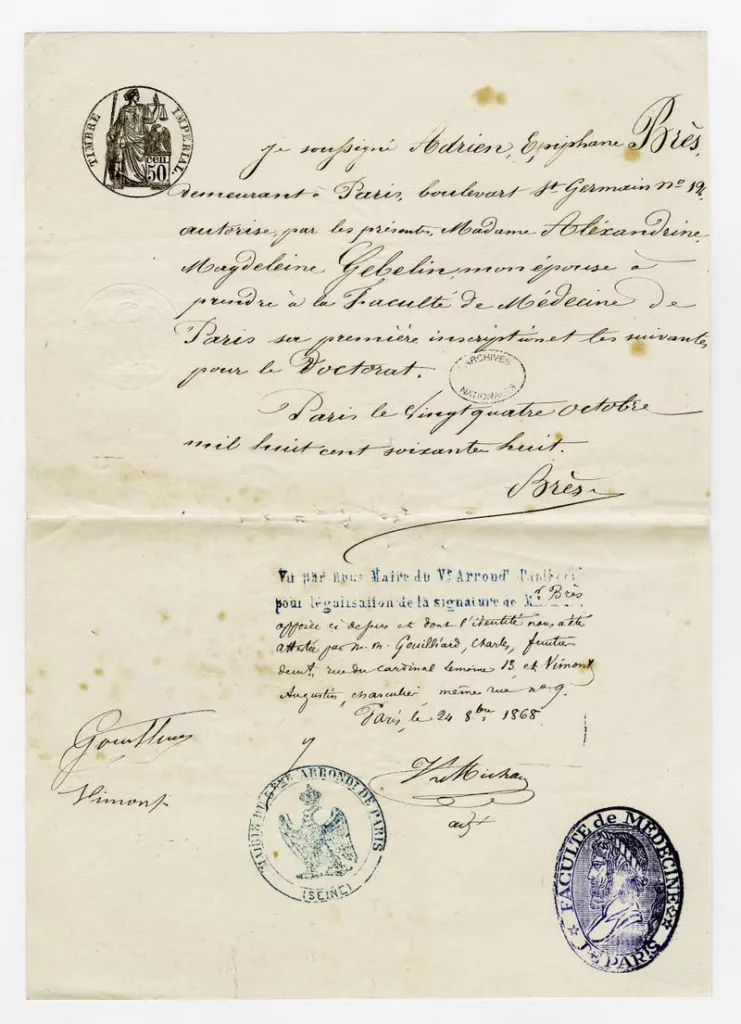 TIMBRE IMPERIAL
50 cen
je soussigné Adrien, Epiphane Brès,
demeurant à Paris, boulevart St Germain no 12,
autorise, par les présentes, Madame Aléxandrine
Magdeleine Gebelin, mon épouse à
prendre à la Faculté de Médecine de
Paris sa première inscription et les suivantes
pour le Doctorat.
ARCHIVES NATIONALES
Paris le vingt quatre octobre
mil huit cent soixante huit.
Brès
Vu par nous Maire du Ve Arrondt
pour légalisation de la signature de M. Brès
apposée ci dessus et dont l'identité nous a été
attestée par M. M. Gouilliard, Charles, fruitier
demt rue du cardinal Lemoine 13 et Vimont
Augustin, charcutier même rue no 9.
Paris, le 24 8bre 1868
Vimont
MAIRIE DU 5EME ARRONDT DE PARIS
(SEINE)
adjt
FACULTÉ de MÉDECINE
DE PARIS